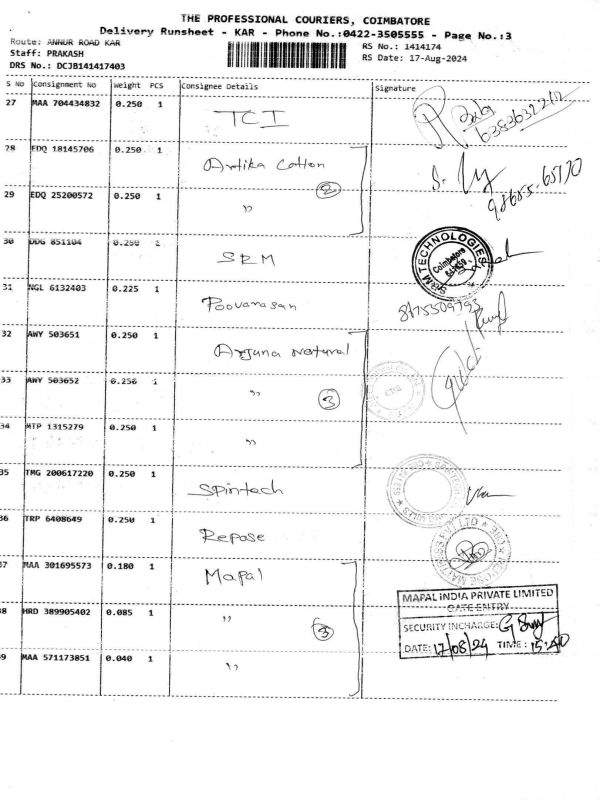 THE PROFESSIONAL COURIERS, COIMBATORE
Delivery Runsheet - KAR - Phone No.:0422-3505555 - Page No.:3
Route: ANNUR ROAD KAR
Staff: PRAKASH
DRS No.: DCJB141417403
RS No.: 1414174
RS Date: 17-Aug-2024
S No Consignment No Weight PCS Consignee Details Signature
27 MAA 704434832 0.250 1 TCI
6383632212
28 EDQ 18145706 0.250 1 Artika Cotton
2
29 EDQ 25200572 0.250 1 "
98655-65170
30 DDG 851104 0.250 1 SRM
SRM TECHNOLOGIES
Coimbatore
31 NGL 6132403 0.225 1 Poovarasan
8775509795
32 AWY 503651 0.250 1 Arjuna Natural
33 AWY 503652 0.250 1 "
3
34 MTP 1315279 0.250 1 "
35 TMG 200617220 0.250 1 Spintech
36 TRP 6408649 0.250 1 Repose
37 MAA 301695573 0.180 1 Mapal
38 HRD 389905402 0.085 1 "
3
39 MAA 571173851 0.040 1 "
MAPAL INDIA PRIVATE LIMITED
GATE ENTRY
SECURITY INCHARGE:
DATE: 17/08/24 TIME: 15:40